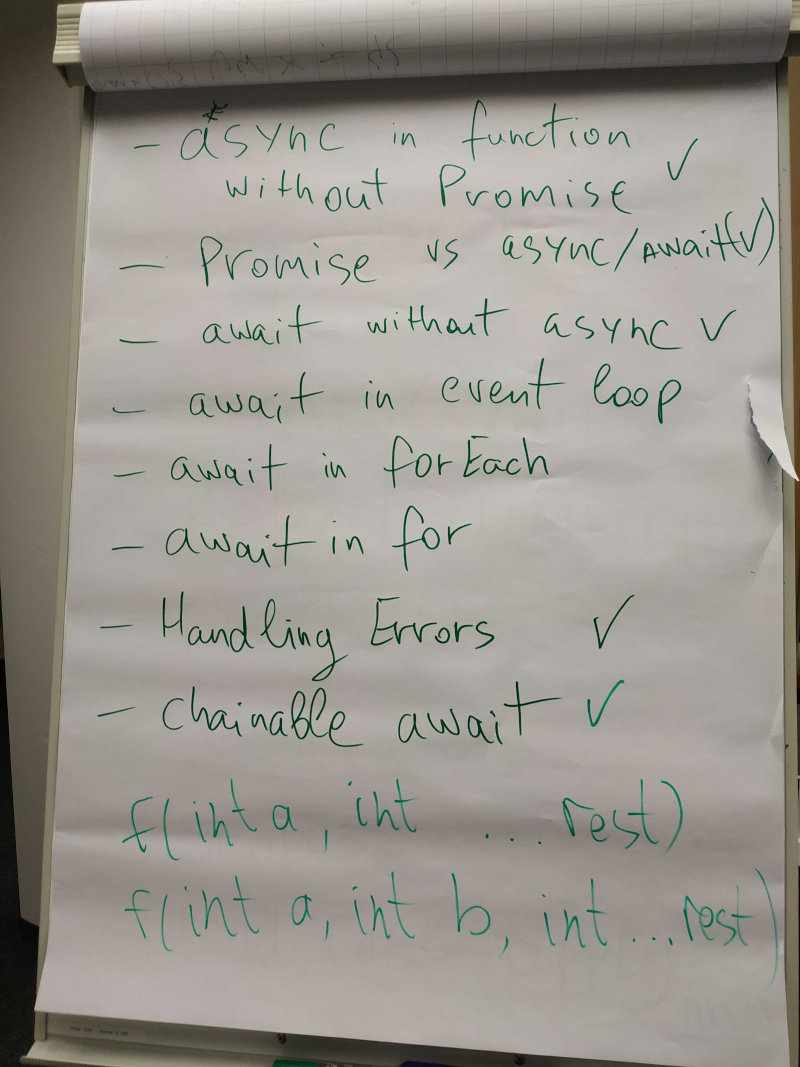 - async in function
without Promise ✓
- Promise vs async/await (✓)
- await without async ✓
- await in event loop
- await in forEach
- await in for
- Handling Errors ✓
- Chainable await ✓
f(int a, int ... rest)
f(int a, int b, int ... rest)